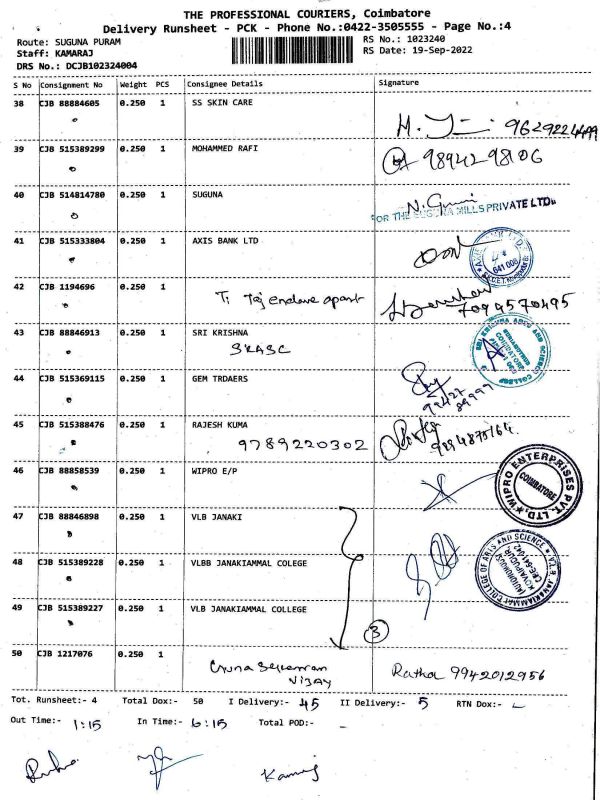 THE PROFESSIONAL COURIERS, Coimbatore
Delivery Runsheet - PCK - Phone No.:0422-3505555 - Page No.:4
Route: SUGUNA PURAM RS No.: 1023240
Staff: KAMARAJ RS Date: 19-Sep-2022
DRS No.: DCJB102324004
S No Consignment No Weight PCS Consignee Details Signature
38 CJB 88884605 0.250 1 SS SKIN CARE
9629224499
39 CJB 515389299 0.250 1 MOHAMMED RAFI 9894298106
40 CJB 514814780 0.250 1 SUGUNA
FOR THE SUGUNA MILLS PRIVATE LTD.
41 CJB 515333804 0.250 1 AXIS BANK LTD
641 008
42 CJB 1194696 0.250 1 Ti Taj enclave apart
7094570495
43 CJB 88846913 0.250 1 SRI KRISHNA
SKASC
SRI KRISHNA ARTS AND SCIENCE COLLEGE
COIMBATORE
44 CJB 515369115 0.250 1 GEM TRDAERS
99427
89997
45 CJB 515388476 0.250 1 RAJESH KUMA
9789220302
46 CJB 88858539 0.250 1 WIPRO E/P
WIPRO ENTERPRISES PVT. LTD.
COIMBATORE
47 CJB 88846898 0.250 1 VLB JANAKI
48 CJB 515389228 0.250 1 VLBB JANAKIAMMAL COLEGE
V.L.B. JANAKIAMMAL COLLEGE OF ARTS AND SCIENCE
(AUTONOMOUS)
KOVAIPUDUR
CBE-641 042
49 CJB 515389227 0.250 1 VLB JANAKIAMMAL COLLEGE
3
50 CJB 1217076 0.250 1 Ratha 9942012956
VIJAY
Tot. Runsheet:- 4 Total Dox:- 50 I Delivery:- 45 II Delivery:- 5 RTN Dox:-
Out Time:- 1:15 In Time:- 6:15 Total POD:- -